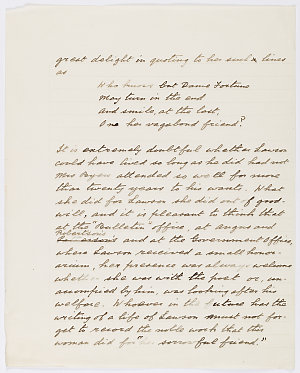 great delight in quoting to her such lines
as
Who knows but Dame Fortune
May turn in the end
and smile, at the last,
On her vagabond friend?
It is extremely doubtful whether Lawson
could have lived so long as he did had not
Mrs Byers attended so well for more
than twenty years to his wants. What
she did for Lawson she did out of good-
will, and it is pleasant to think that
at the "Bulletin" office, at Angus and
Robertson's
and at the Government offices,
where Lawson received a small honor-
arium, her presence was always welcome
whether she was with the poet or, un-
accompanied by him, was looking after his
welfare. Whoever in the future has the
writing of a life of Lawson must not for-
get to record the noble work that this
woman did for her sorrowful friend."